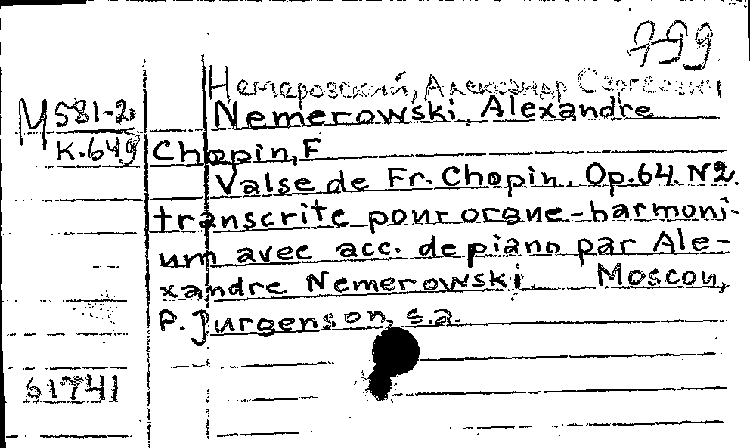 799
Немеровский, Александр Сергеевич
Nemerowski, Alexandre
М 581-2
К.649
Chopin, F
Valse de Fr. Chopin. Op.64. N2.
transcrite pour orgue-harmoni-
um avec acc. de piano par Ale-
xandre Nemerowski. Moscou,
P. Jurgenson, s.a.
61741